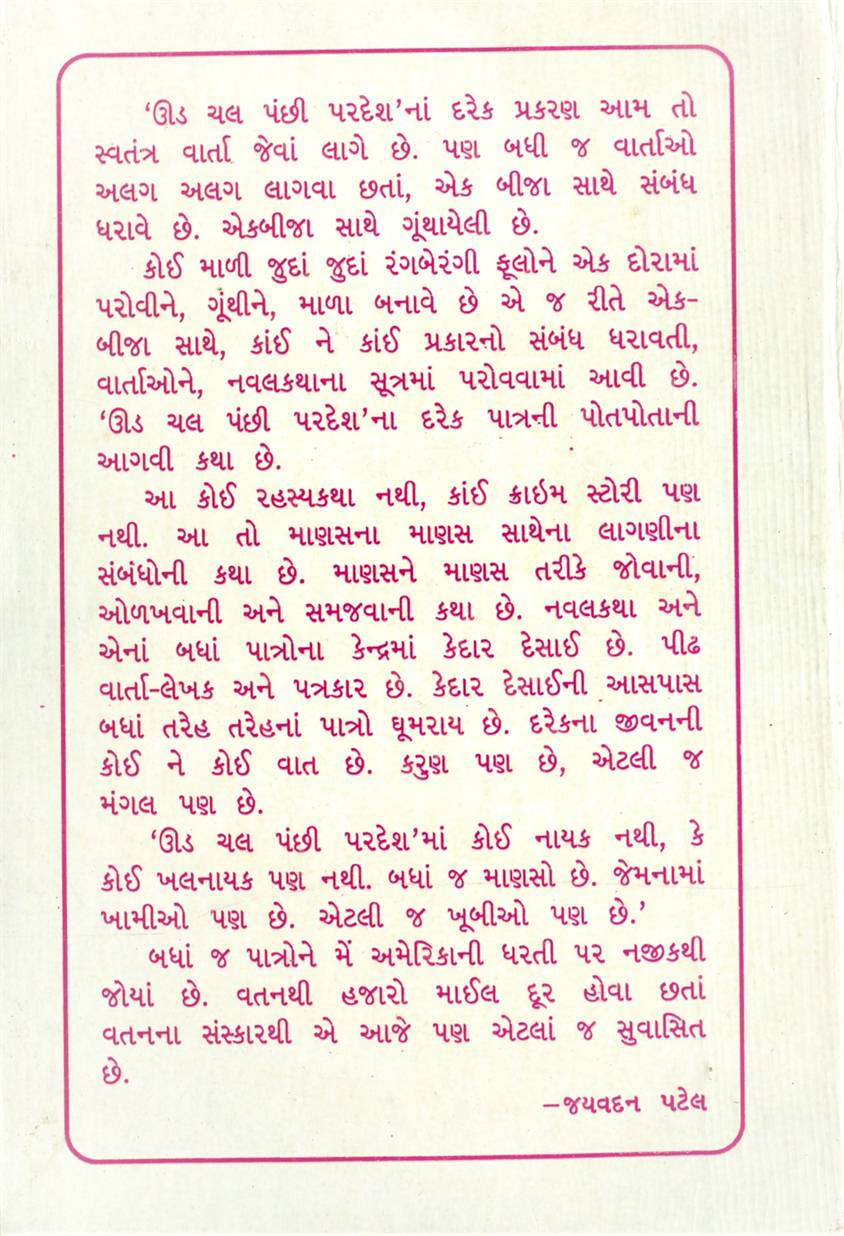 ‘ઊડ ચલ પંછી પરદેશ’નાં દરેક પ્રકરણ આમ તો
સ્વતંત્ર વાર્તા જેવાં લાગે છે. પણ બધી જ વાર્તાઓ
અલગ અલગ લાગવા છતાં, એક બીજા સાથે સંબંધ
ધરાવે છે. એકબીજા સાથે ગૂંથાયેલી છે.
કોઈ માળી જુદાં જુદાં રંગબેરંગી ફૂલોને એક દોરામાં
પરોવીને, ગૂંથીને, માળા બનાવે છે એ જ રીતે એક-
બીજા સાથે, કાંઈ ને કાંઈ પ્રકારનો સંબંધ ધરાવતી,
વાર્તાઓને, નવલકથાના સૂત્રમાં પરોવવામાં આવી છે.
‘ઊડ ચલ પંછી પરદેશ’ના દરેક પાત્રની પોતપોતાની
આગવી કથા છે.
આ કોઈ રહસ્યકથા નથી, કાંઈ ક્રાઇમ સ્ટોરી પણ
નથી. આ તો માણસના માણસ સાથેના લાગણીના
સંબંધોની કથા છે. માણસને માણસ તરીકે જોવાની,
ઓળખવાની અને સમજવાની કથા છે. નવલકથા અને
એનાં બધાં પાત્રોના કેન્દ્રમાં કેદાર દેસાઈ છે. પીઢ
વાર્તા-લેખક અને પત્રકાર છે. કેદાર દેસાઈની આસપાસ
બધાં તરેહ તરેહનાં પાત્રો ઘૂમરાય છે. દરેકના જીવનની
કોઈ ને કોઈ વાત છે. કરુણ પણ છે, એટલી જ
મંગલ પણ છે.
‘ઊડ ચલ પંછી પરદેશ’માં કોઈ નાયક નથી, કે
કોઈ ખલનાયક પણ નથી. બધાં જ માણસો છે. જેમનામાં
ખામીઓ પણ છે. એટલી જ ખૂબીઓ પણ છે.’
બધાં જ પાત્રોને મેં અમેરિકાની ધરતી પર નજીકથી
જોયાં છે. વતનથી હજારો માઈલ દૂર હોવા છતાં
વતનના સંસ્કારથી એ આજે પણ એટલાં જ સુવાસિત
છે.
–જયવદન પટેલ